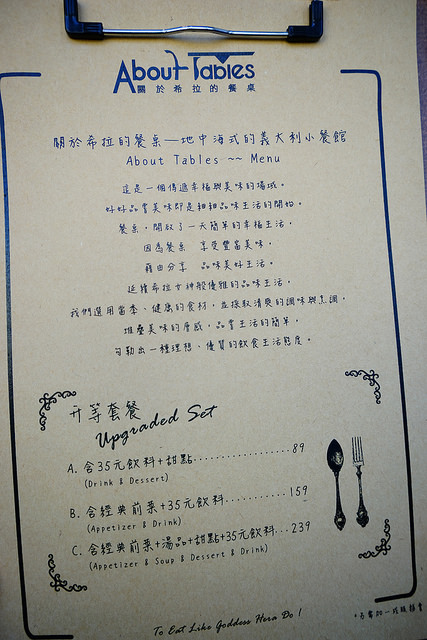 About Tables
關於希拉的餐桌
關於希拉的餐桌—地中海式的義大利小餐館
About Tables ~~ Menu
這是一個傳遞幸福與美味的場域。
好好品嘗美味即是細細品味生活的開始。
餐桌，開啟了一天簡單的幸福生活。
因為餐桌 享受豐富美味，
藉由分享 品味美好生活。
延續希拉女神般優雅的品味生活，
我們選用當季、健康的食材，並採取清爽的調味與烹調，
堆疊美味的層感，品嘗生活的簡單，
勾勒出一種理想、優質的飲食生活態度。
升等套餐
Upgraded Set
A. 含35元飲料+甜點....................89
(Drink & Dessert)
B. 含經典前菜+35元飲料............159
(Appetizer & Drink)
C. 含經典前菜+湯品+甜點+35元飲料...239
(Appetizer & Soup & Dessert & Drink)
To Eat Like Goddess Hera Do !